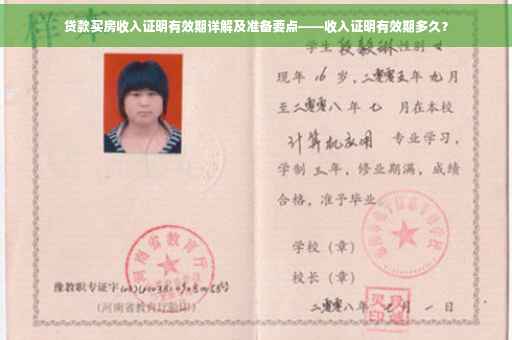 贷款买房收入证明有效期详解及准备要点——收入证明有效期多久？
样本
学生 性别 女
现年 16 岁，二零零五年 九月
至二零零八年 七 月在本校
计算机应用 专业学习，
学制 三年，修业期满，成绩
合格，准予毕业
学校（章）
校长（章）
二零零八年 七 月 一 日
河南省教育厅
豫教职专证字
（河南省教育厅验印）